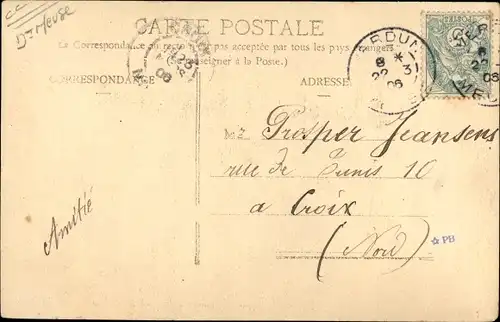 Dt Meuse
CARTE POSTALE
La Correspondance au recto n'est pas acceptée par tous les pays étrangers
(Se renseigner à la Poste.)
CORRESPONDANCE
ADRESSE
VERDUN
8 *
22 3
06
Prosper Jeansens
rue de Tunis 10
a Croix
(Nord)
Amitié
☆PB